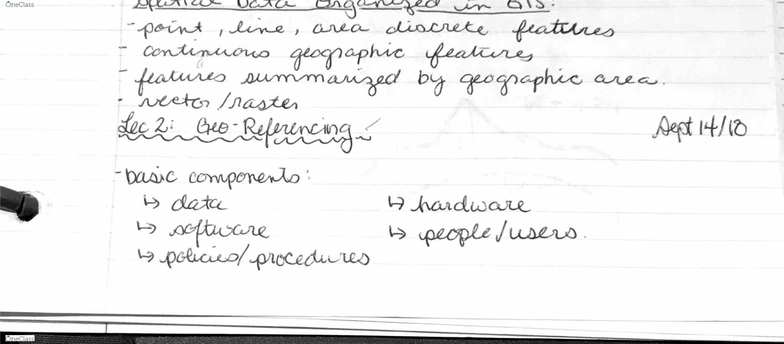 OneClass
Spatial Data Organized in GIS:
- point, line, area discrete features
- continuous geographic features
- features summarized by geographic area.
- vector/raster
Lec 2: Geo-Referencing ✓ Sept 14/18
- basic components:
↳ data ↳ hardware
↳ software ↳ people/users.
↳ policies/procedures
OneClass